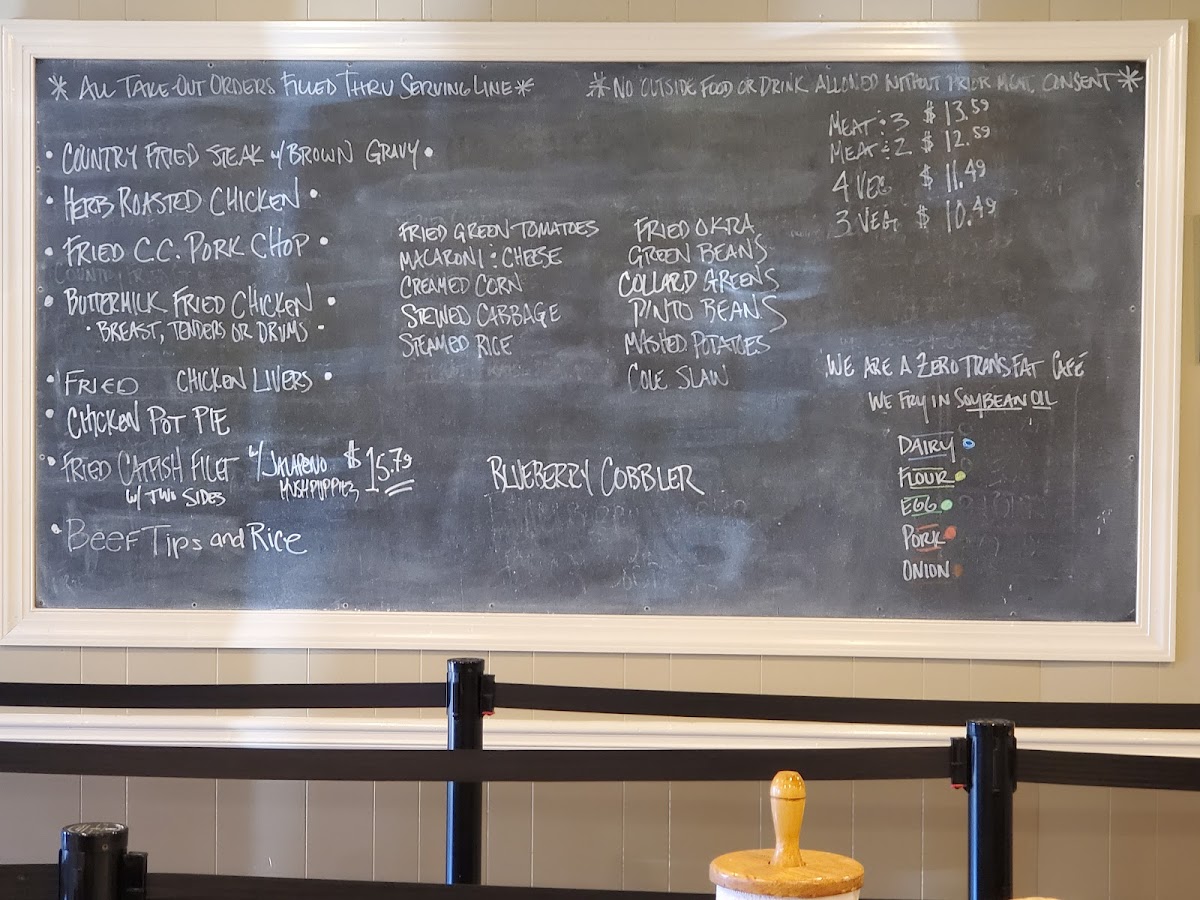 * ALL TAKE-OUT ORDERS FILLED THRU SERVING LINE *
* NO OUTSIDE FOOD OR DRINK ALLOWED WITHOUT PRIOR CONSENT *
• COUNTRY FRIED STEAK w/ BROWN GRAVY •
• HERB ROASTED CHICKEN •
• FRIED C.C. PORK CHOP •
• BUTTERMILK FRIED CHICKEN •
• BREAST, TENDERS OR DRUMS •
• FRIED CHICKEN LIVERS •
• CHICKEN POT PIE
• FRIED CATFISH FILET w/ JALAPENO $15.79
w/ TWO SIDES HUSHPUPPIES
• BEEF TIPS and RICE
FRIED GREEN TOMATOES
MACARONI : CHEESE
CREAMED CORN
STEWED CABBAGE
STEAMED RICE
FRIED OKRA
GREEN BEANS
COLLARD GREENS
PINTO BEANS
MASHED POTATOES
COLE SLAW
BLUEBERRY COBBLER
MEAT : 3 $ 13.59
MEAT : 2 $ 12.59
4 VEG $ 11.49
3 VEG $ 10.49
WE ARE A ZERO TRANS FAT CAFÉ
WE FRY IN SOYBEAN OIL
DAIRY
FLOUR
EGG
PORK
ONION